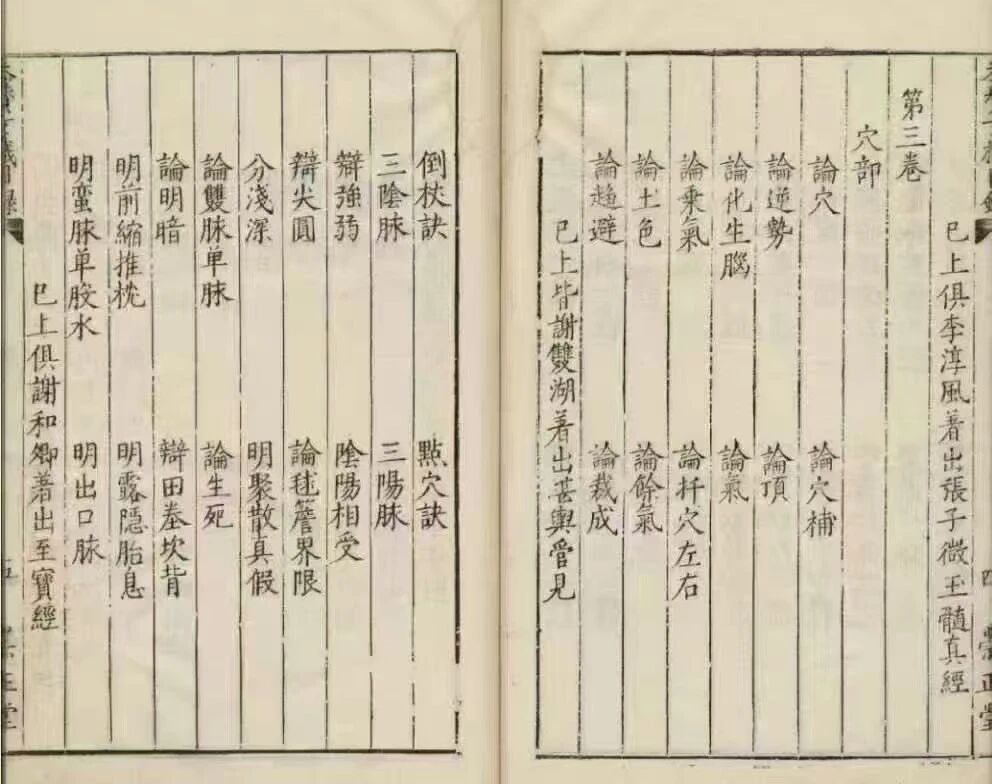 已上俱李淳風著出張子微玉髓真經
第三卷
穴部
論穴 論穴補
論逆勢 論頂
論化生腦 論氣
論乘氣 論扦穴左右
論土色 論餘氣
論趨避 論裁成
已上皆謝雙湖著出堪輿管見
倒杖訣 點穴訣
三陰脉 三陽脉
辯強弱 陰陽相受
辯尖圓 論毬簷界限
分淺深 明聚散真假
論雙脉单脉 論生死
論明暗 辯田叁坎背
明前縮推枕 明露隱胎息
明蛮脉单股水 明出口脉
已上俱謝和卿著出至寶經